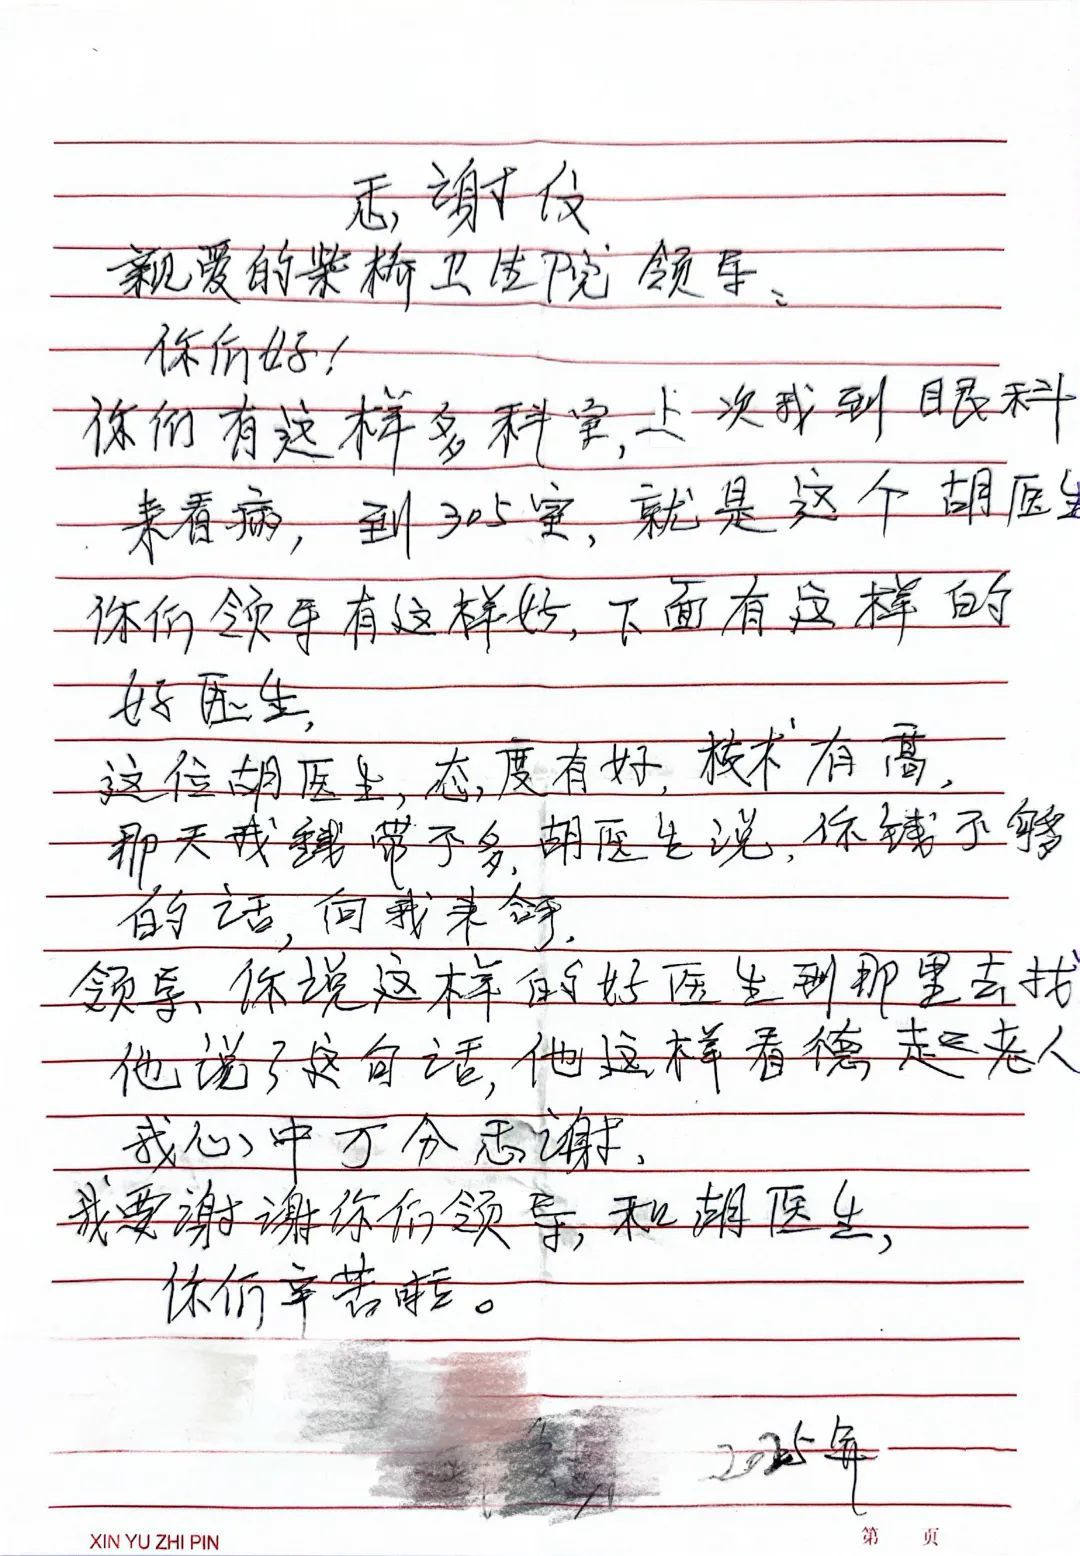 感谢仪
亲爱的柴桥卫生院领导:
你们好!
你们有这样多科室,上次我到眼科
来看病,到305室,就是这个胡医生
你们领导有这样好,下面有这样的
好医生,
这位胡医生,态度有好,技术有高,
那天我錢带不多,胡医生说,你錢不够
的话,向我来拿,
领导、你说这样的好医生到那里去找
他说了这句话,他这样看德起老人
我心中万分感谢,
我要谢谢你们领导,和胡医生,
你们辛苦啦。
2025年
XIN YU ZHI PIN
第 页